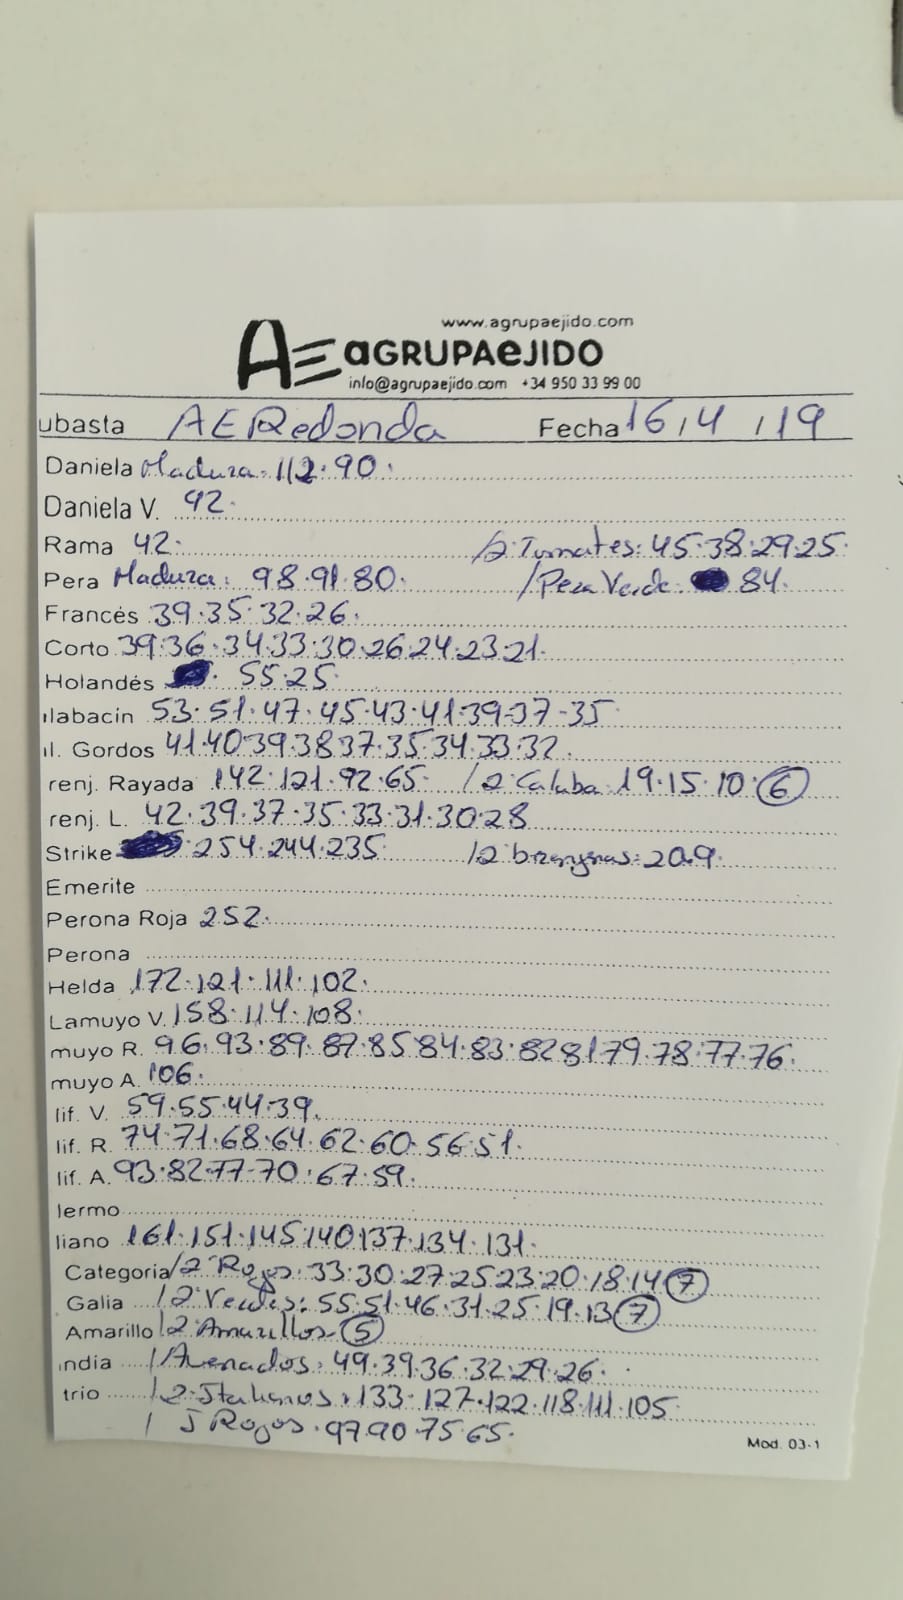 www.agrupaejido.com
AE aGRUPAeJIDO
info@agrupaejido.com +34 950 33 99 00
ubasta AERedonda Fecha 16/4/19
Daniela Madura: 112·90·
Daniela V. 92·
Rama 42· /2 Tomates: 45·38·29·25·
Pera Madura: 98·91·80· /Pera Verde· 84·
Francés 39·35·32·26·
Corto 39·36·34·33·30·26·24·23·21·
Holandés 55·25·
ilabacin 53·51·47·45·43·41·39·37·35
il. Gordos 41·40·39·38·37·35·34·33·32·
renj. Rayada 142·121·92·65· /2 Calaba·19·15·10·(6)
renj. L. 42·39·37·35·33·31·30·28
Strike 254·244·235 /2 brenjenas: 20·9·
Emerite
Perona Roja 252·
Perona
Helda 172·121·111·102·
Lamuyo V. 158·114·108·
muyo R. 96·93·89·87·85·84·83·82·81·79·78·77·76·
muyo A. 106·
lif. V. 59·55·44·39·
lif. R. 74·71·68·64·62·60·56·51·
lif. A. 93·82·77·70·67·59·
lermo
liano 161·151·145·140·137·134·131·
Categoria /2ª Rojos·33·30·27·25·23·20·18·14·(7)
Galia /2 Verdes: 55·51·46·31·25·19·13·(7)
Amarillo /2 Amarillos·(5)
india /Asenados: 49·39·36·32·29·26·
trio /2 Italianos·133·127·122·118·111·105·
/ J Rojos·97·90·75·65·
Mod. 03-1